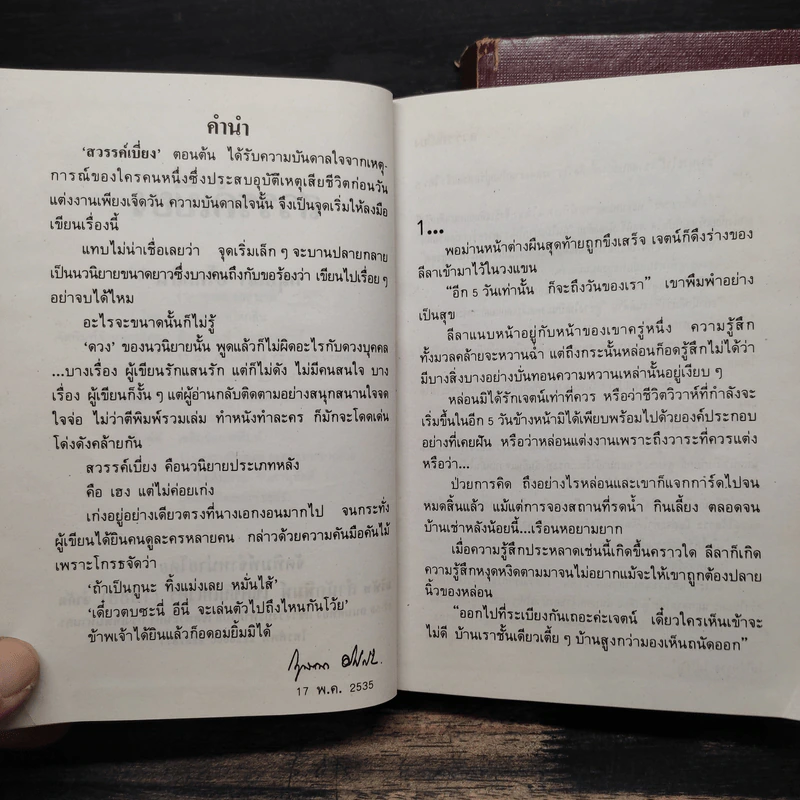 คำนำ
‘สวรรค์เบี่ยง’ ตอนต้น ได้รับความบันดาลใจจากเหตุ-
การณ์ของใครคนหนึ่งซึ่งประสบอุบัติเหตุเสียชีวิตก่อนวัน
แต่งงานเพียงเจ็ดวัน ความบันดาลใจนั้น จึงเป็นจุดเริ่มให้ลงมือ
เขียนเรื่องนี้
แทบไม่น่าเชื่อเลยว่า จุดเริ่มเล็ก ๆ จะบานปลายกลาย
เป็นนวนิยายขนาดยาวซึ่งบางคนถึงกับขอร้องว่า เขียนไปเรื่อย ๆ
อย่าจบได้ไหม
อะไรจะขนาดนั้นก็ไม่รู้
‘ดวง’ ของนวนิยายนั้น พูดแล้วก็ไม่ผิดอะไรกับดวงบุคคล
...บางเรื่อง ผู้เขียนรักแสนรัก แต่ก็ไม่ดัง ไม่มีคนสนใจ บาง
เรื่อง ผู้เขียนก็งั้น ๆ แต่ผู้อ่านกลับติดตามอย่างสนุกสนานใจจด
ใจจ่อ ไม่ว่าตีพิมพ์รวมเล่ม ทำหนังทำละคร ก็มักจะโดดเด่น
โด่งดังคล้ายกัน
สวรรค์เบี่ยง คือนวนิยายประเภทหลัง
คือ เฮง แต่ไม่ค่อยเก่ง
เก่งอยู่อย่างเดียวตรงที่นางเอกงอนมากไป จนกระทั่ง
ผู้เขียนได้ยินคนดูละครหลายคน กล่าวด้วยความคันมือคันไม้
เพราะโกรธจัดว่า
‘ถ้าเป็นกูนะ ทิ้งแม่งเลย หมั่นไส้’
‘เดี๋ยวตบซะนี่ อีนี่ จะเล่นตัวไปถึงไหนกันโว้ย’
ข้าพเจ้าได้ยินแล้วก็อดอมยิ้มมิได้
17 พ.ค. 2535
1...
พอม่านหน้าต่างผืนสุดท้ายถูกขึงเสร็จ เจตน์ก็ดึงร่างของ
ลีลาเข้ามาไว้ในวงแขน
“อีก 5 วันเท่านั้น ก็จะถึงวันของเรา” เขาพึมพำอย่าง
เป็นสุข
ลีลาแนบหน้าอยู่กับหน้าของเขาครู่หนึ่ง ความรู้สึก
ทั้งมวลคล้ายจะหวานฉ่ำ แต่ถึงกระนั้นหล่อนก็อดรู้สึกไม่ได้ว่า
มีบางสิ่งบางอย่างบั่นทอนความหวานเหล่านั้นอยู่เงียบ ๆ
หล่อนมิได้รักเจตน์เท่าที่ควร หรือว่าชีวิตวิวาห์ที่กำลังจะ
เริ่มขึ้นในอีก 5 วันข้างหน้ามิได้เพียบพร้อมไปด้วยองค์ประกอบ
อย่างที่เคยฝัน หรือว่าหล่อนแต่งงานเพราะถึงวาระที่ควรแต่ง
หรือว่า...
ป่วยการคิด ถึงอย่างไรหล่อนและเขาก็แจกการ์ดไปจน
หมดสิ้นแล้ว แม้แต่การจองสถานที่รดน้ำ กินเลี้ยง ตลอดจน
บ้านเช่าหลังน้อยนี้...เรือนหอยามยาก
เมื่อความรู้สึกประหลาดเช่นนี้เกิดขึ้นคราวใด ลีลาก็เกิด
ความรู้สึกหงุดหงิดตามมาจนไม่อยากแม้จะให้เขาถูกต้องปลาย
นิ้วของหล่อน
“ออกไปที่ระเบียงกันเถอะค่ะเจตน์ เดี๋ยวใครเห็นเข้าจะ
ไม่ดี บ้านเราชั้นเดียวเตี้ย ๆ บ้านสูงกว่ามองเห็นถนัดออก”